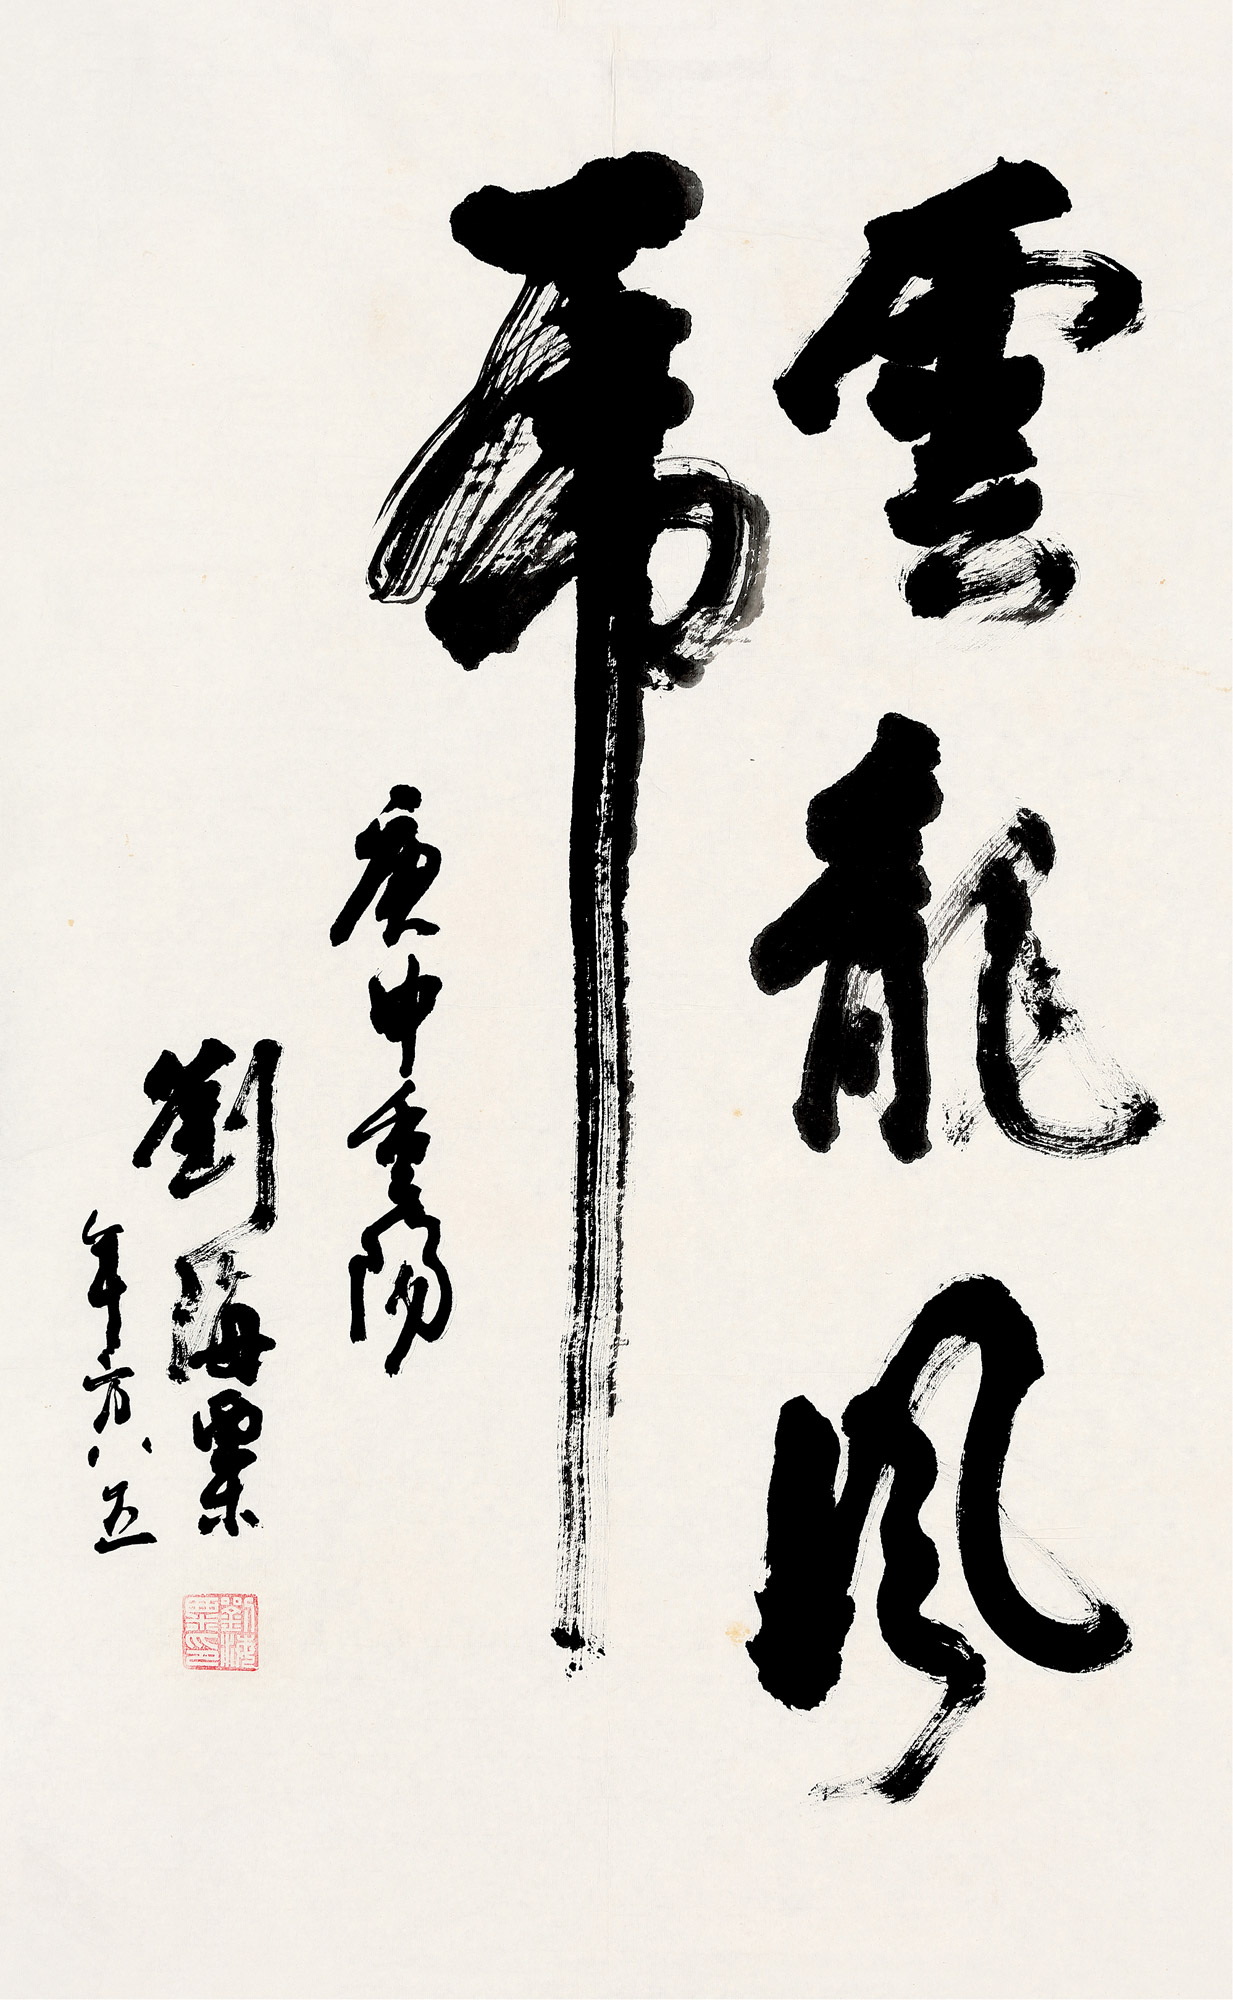 雲龍風
虎
庚申重陽
劉海粟
年方八五
劉海粟印